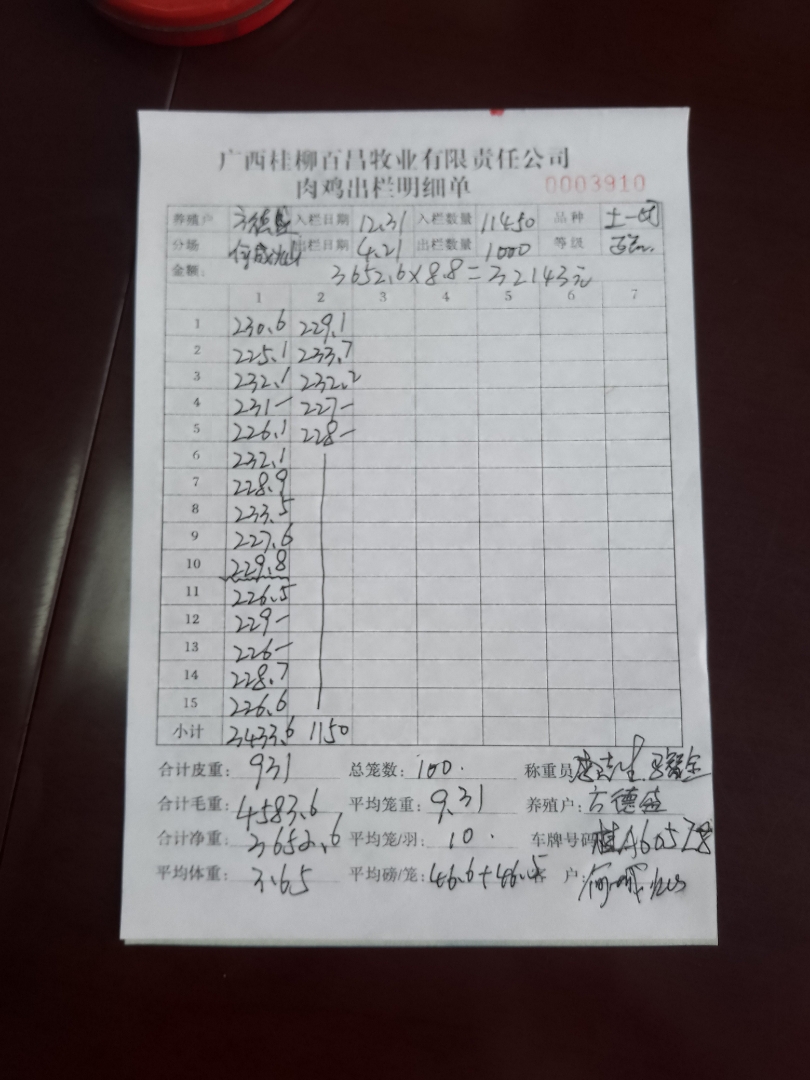 广西桂柳百昌牧业有限责任公司
肉鸡出栏明细单 0003910
养殖户 方德盛 入栏日期 12.31 入栏数量 11450 品种 土一
分场 出栏日期 4.21 出栏数量 1000 等级
金额: 3652.6×8.8=32143元
1 2 3 4 5 6 7
1 230.6 229.1
2 225.1 233.7
3 232.1 232.2
4 231- 227-
5 226.1 228-
6 232.1
7 228.9
8 233.5
9 227.6
10 229.8
11 226.5
12 229-
13 226-
14 228.7
15 226.6
小计 3433.6 1150
合计皮重: 931 总笼数: 100. 称重员
合计毛重: 4583.6 平均笼重: 9.31 养殖户: 方德盛
合计净重: 3652.6 平均笼/羽: 10. 车牌号码 桂A605Z8
平均体重: 3.65 平均磅/笼: 46.6+46.5 户: